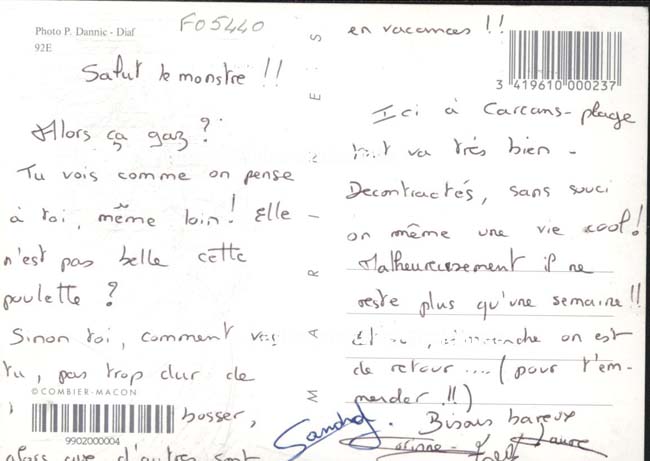 Photo P. Dannic - Diaf
92E
F05440
Salut le monstre !!
Alors ça gaz ?
Tu vois comme on pense
à toi, même loin ! Elle
n'est pas belle cette
poulette ?
Sinon toi, comment vas
tu, pas trop dur de
© COMBIER-MACON
bosser,
9902000004
alors que d'autres sont
M A R S E
en vacances !!
3 419610 000237
Ici à Carcans-plage
tout va très bien -
Decontractés, sans souci
on même une vie cool !
Malheureusement il ne
reste plus qu'une semaine !!
Et , dimanche on est
de retour .... ( pour t'em-
merder !!! )
Bisous baveux
Sandra.
Corinne - Fred Laure